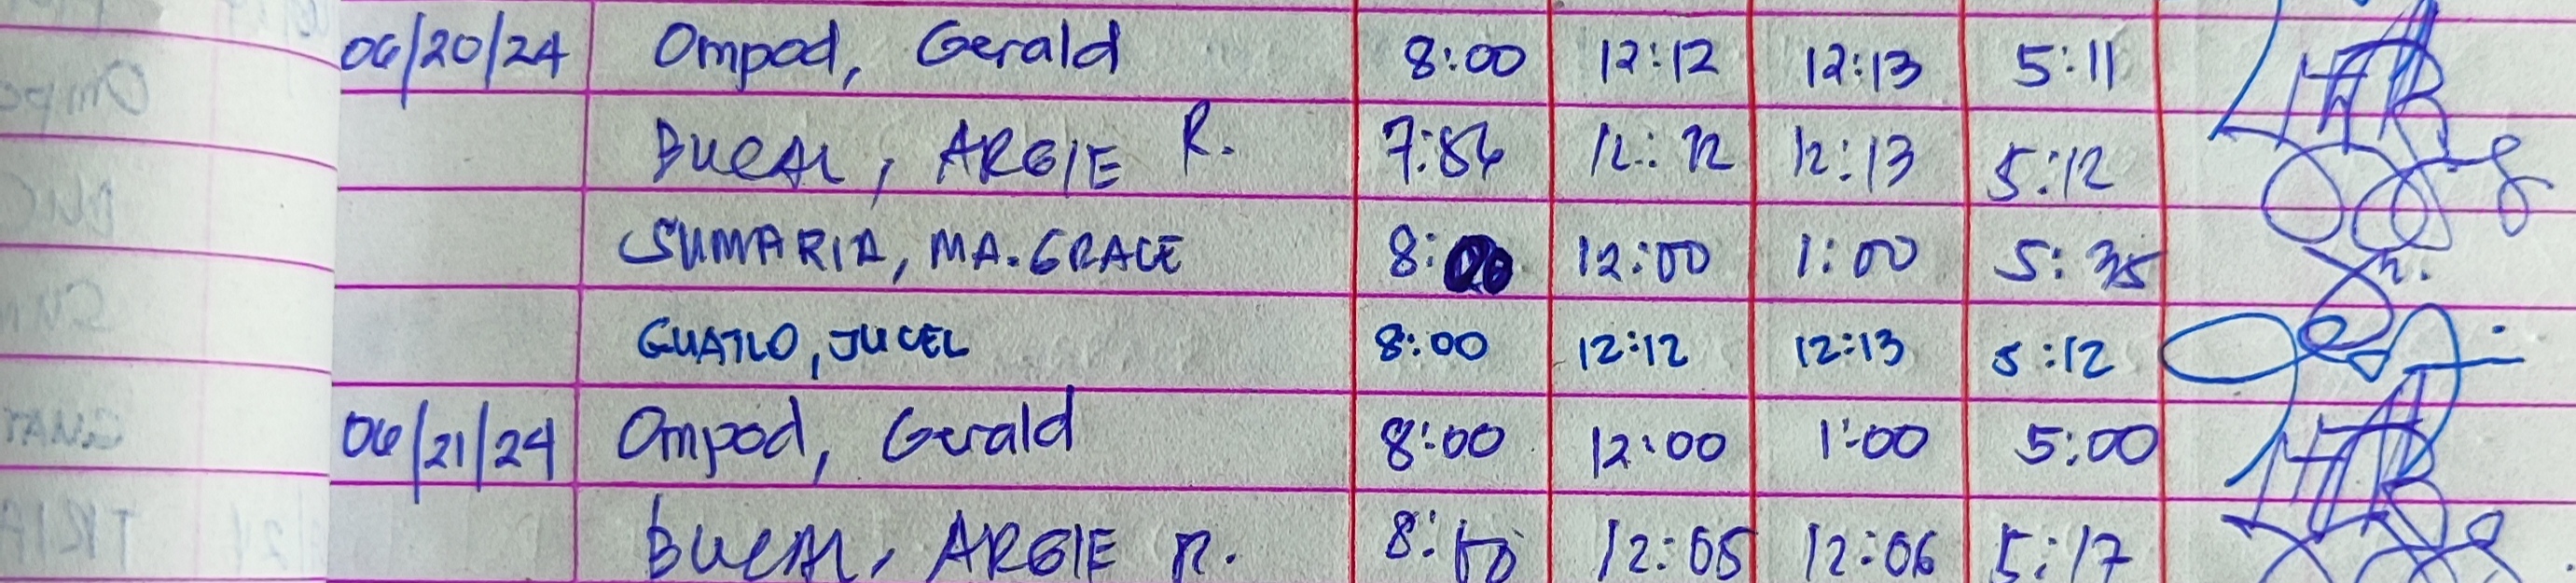 06/20/24 Ompod, Gerald 8:00 12:12 12:13 5:11
BUCAL, ARGIE R. 7:56 12:12 12:13 5:12
SUMARIA, MA. GRACE 8: 12:00 1:00 5:35
GUATLO, JUCEL 8:00 12:12 12:13 5:12
06/21/24 Ompod, Gerald 8:00 12:00 1:00 5:00
BUCAL, ARGIE R. 12:05 12:06 5:17